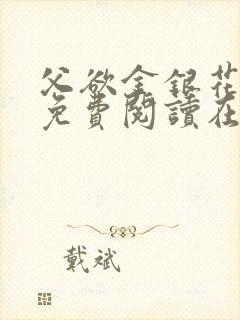 父欲金銀花
免費閱讀在
戴斌